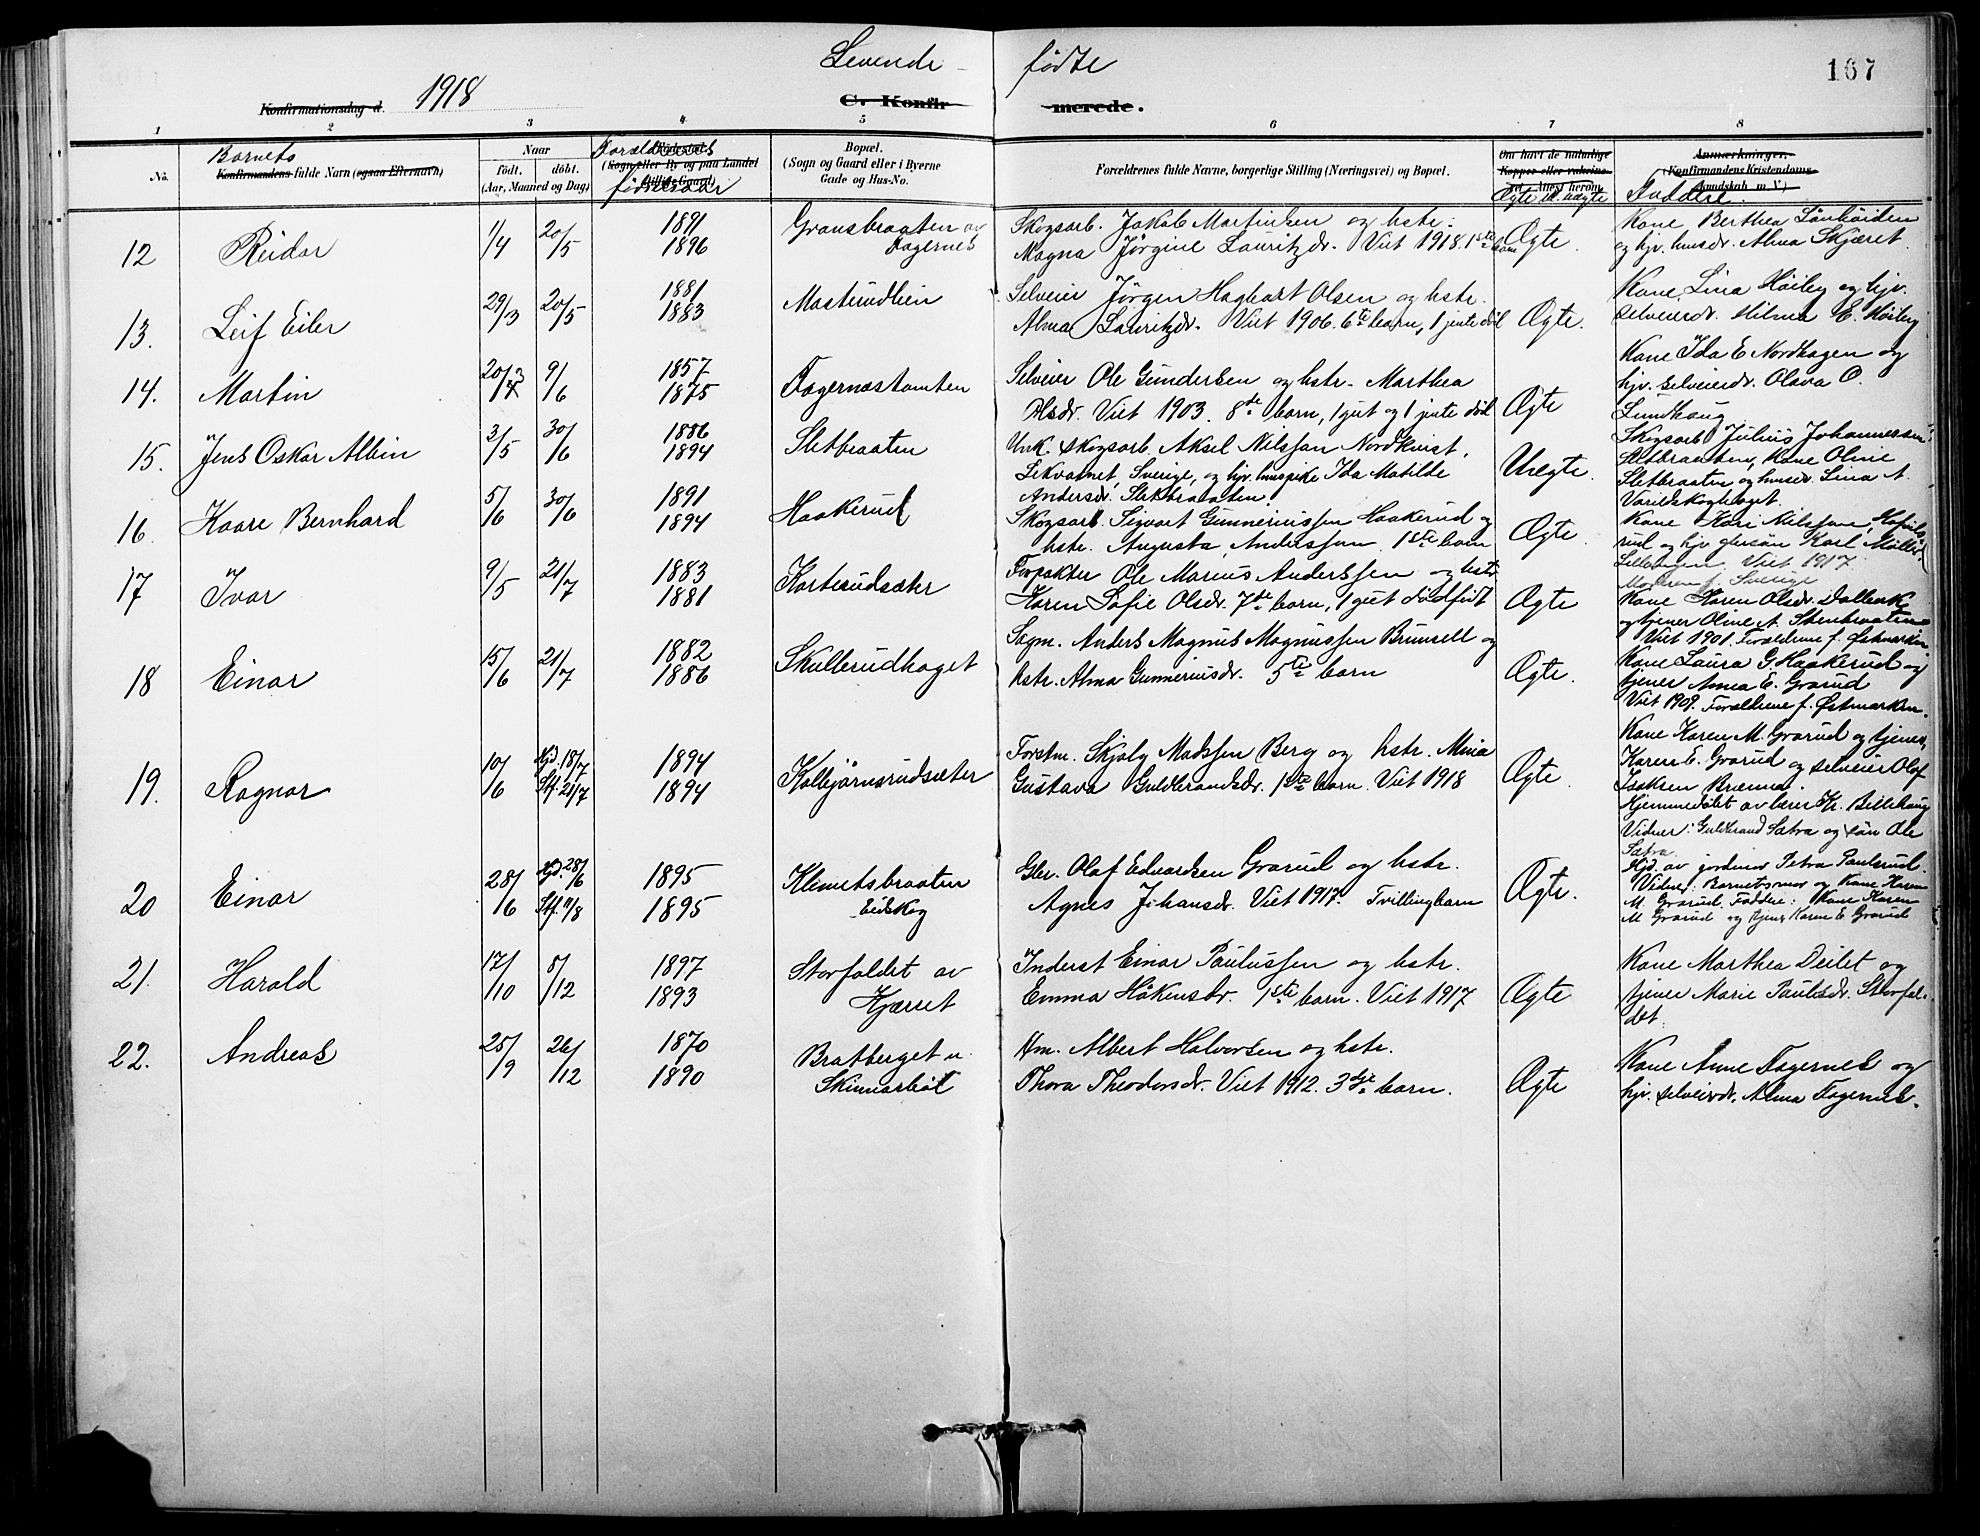 Levende - fødte
167
Konfirmationsdag d. 1918
C. Konfir merede.
1 2 3 4 5 6 7 8
No.
Barnets
Konfirmandens fulde Navn (ogsaa Efternavn)
Naar
født. døbt.
(Aar, Maaned og Dag)
Forældrenes
fødselsaar
Bopæl.
(Sogn og Gaard eller i Byerne
Gade og Hus-No.
Forældrenes fulde Navne, borgerlige Stilling (Næringsvei) og Bopæl.
Om havt de naturlige
Kopper eller vaksine-
ret. Attest herom.
Ægte el. uægte
Anmærkninger.
(Konfirmandens Kristendoms-
kundskab m. V.)
Faddere.
12 Reidar 1/4 20/5 1891 1896 Gransbraaten av Fagernes
Skogsarb. Jakob Martinsen og hstr.
Magna Jørgine Lauritzdr. Viet 1918. 1ste barn
Ægte.
Kone Berthea Lønhøiden
og hjv. husdr. Alma Skjæret.
13. Leif Eiler 29/3 20/5 1881 1883 Mastrudlien
Selveier Jørgen Hagbart Olsen og hstr.
Alma Lauritzdr. Viet 1906. 6te barn, 1 jente død
Ægte.
Kone Lina Høiby og hjv.
selveierdr. Hilma E. Høiby
14. Martin 20/3 9/6 1857 1875 Fagernestomten
Selveier Ole Gundersen og hstr. Marthea
Olsdr. Viet 1903. 8de barn, 1 gut og 1 jente død
Ægte
Kone Ida E. Nordhagen og
hjv. selveierdr. Olava O.
Lundhaug
15. Jens Oskar Albin 3/5 30/6 1886 1894 Sletbraaten
Unk. skogsarb. Aksel Nilsson Nordkvist,
Lekvatnet, Sverige, og hjv. huspike Ida Matilde
Andersdr. Sletbraaten
Uægte.
Skogsarb. Julius Johannessen
Sletbraaten, Kone Oline
Sletbraaten og husdr. Lina A.
Varildskogtoget
16. Kaare Bernhard 5/6 30/6 1891 1894 Haakerud
Skogsarb. Sigvart Gunneriussen Haakerud og
hstr. Augusta Anderssen. 1ste barn
Ægte.
Kone Kari Nilsson,
rud og hjv. Karl
Viet 1917.
Moderen f. Sverige
17 Ivar 9/5 21/7 1883 1881 Korterudsæter
Forpakter Ole Marius Anderssen og hstr
Karen Sofie Olsdr. 7de barn, 1 gut dødfødt
Ægte
Kone Karen Olsdr. Dalbeck
og tjener Oline A. Stenbraaten
Viet 1901. Forældrene f. Østmarken
18 Einar 15/6 21/7 1882 1886 Skullerudhaget
Sagm. Anders Magnus Magnussen Brunsell og
hstr. Alma Gunneriusdr. 5te barn
Ægte.
Kone Laura G. Haakerud og
tjener Anna E. Grarud
Viet 1909. Forældrene f. Østmarken.
19. Ragnar 10/6 Hjd. 18/7 Stf. 21/7 1894 1894 Kolbjørnsrudsæter
Forstm. Skjøly Madssen Berg og hstr. Mina
Gustava Guldbrandsdr. 1ste barn. Viet 1918
Ægte.
Kone Karen M. Grarud og tjener
Karen E. Grarud og selveier Olaf
Isaksen Brenna.
Hjemmedøbt av lærer Kr. Billehaug
Vidner: Guldbrand Sætra og søn Ole
Sætra
20 Einar 28/6 Hjd. 28/6 Stf. 11/8 1895 1895 Klimetsbraaten Eidskog
Gbr. Olaf Edvardsen Grarud og hstr.
Agnes Johansdr. Viet 1917. Tvillingbarn
Ægte.
Hjd. av jordmor Petra Paulsrud.
Vidner: Barnetsmor og Kone Karen
M. Grarud. Faddere: Kone Karen
M. Grarud og tjener Karen E. Grarud
21. Harald 17/10 8/12 1897 1893 Storfaldet av Kjærret
Inderst Einar Paulussen og hstr.
Emma Håkensdr. 1ste barn. Viet 1917
Ægte
Kone Marthea Deilet og
tjener Marie Paulsdr. Storfal-
det.
22. Andreas 25/9 26/12 1870 1890 Bratberget u. Skinnarbøl
Hm. Albert Halvorsen og hstr.
Thora Theodorsdr. Viet 1912. 3dje barn.
Ægte
Kone Anne Fagernes og
hjv. selveierdr. Alma Fagernes.